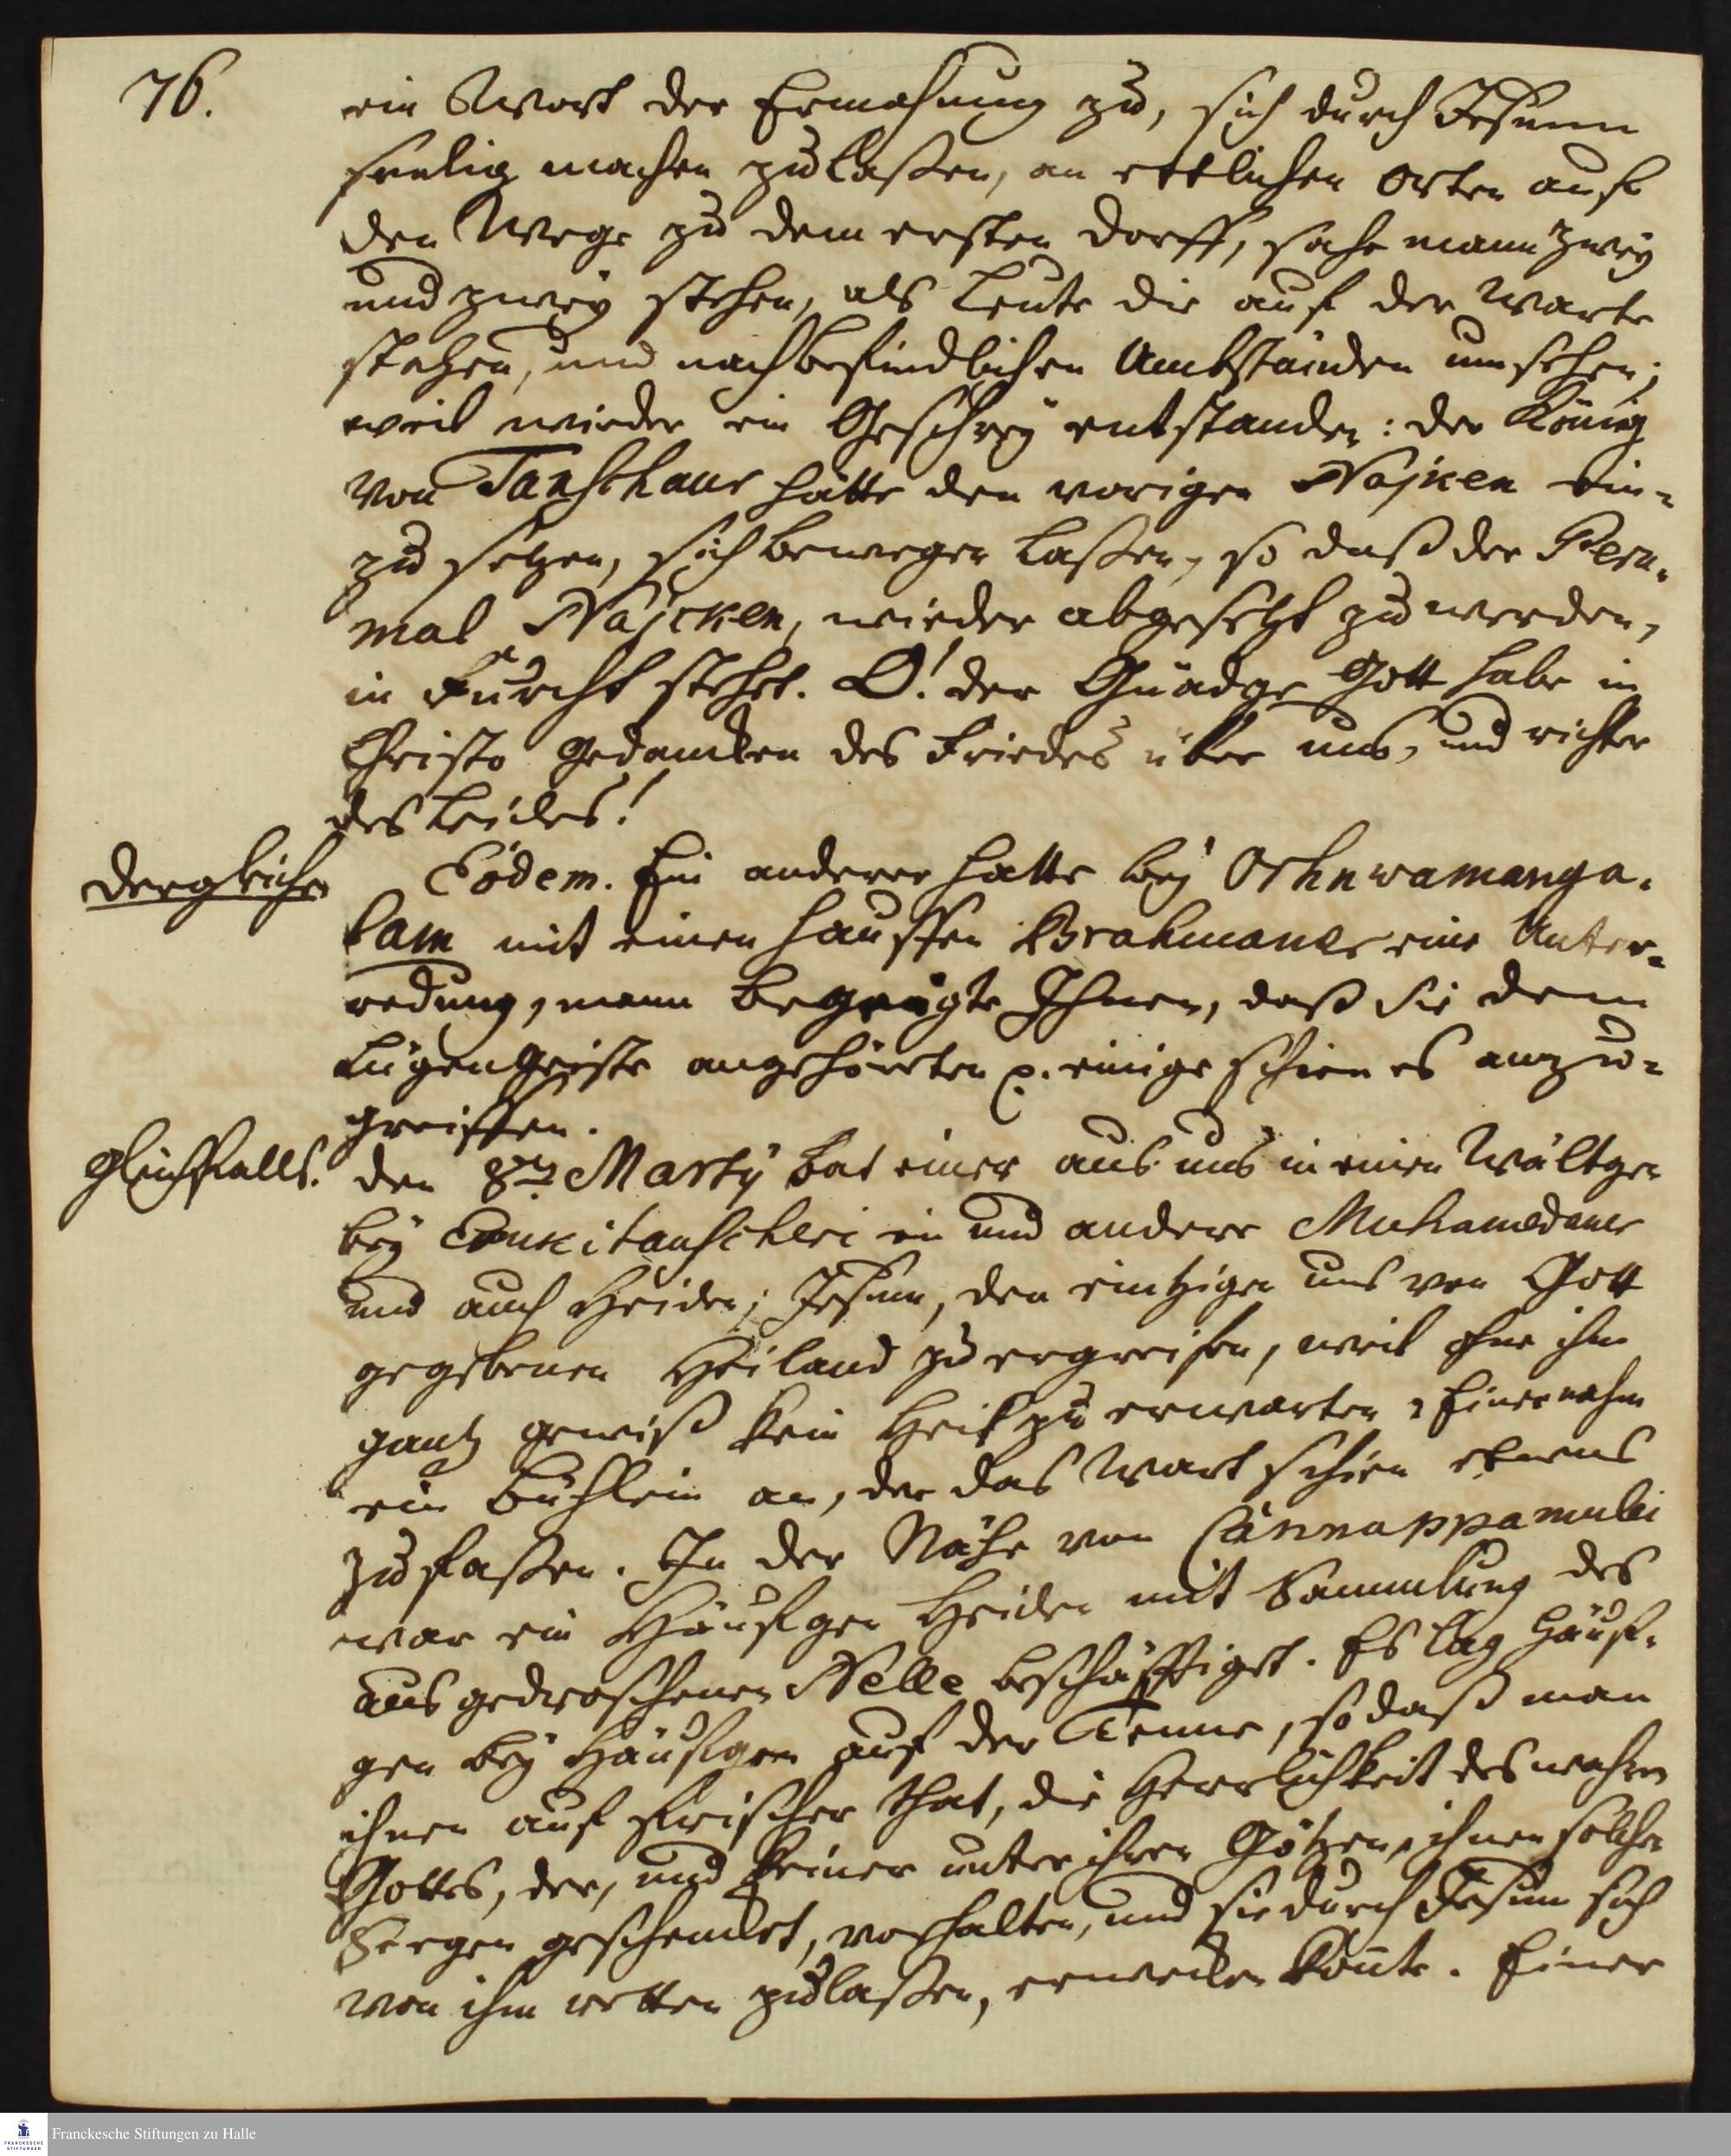 76.
ein Wort der Ermahnung zu, sich durch Jesum
seelig machen zu laßen, an ettlichen Orten auf
den Wege zu dem ersten Dorff, sahe mann zwey
und zwey stehen, als Leute die auf der Warte
stehen, und nach befindlichen Umbständen umsehen;
weil wieder ein Geschrey entstanden: der König
von Tanschaur hätte den vorigen Najken ein-
zu setzen, sich bewegen laßen, so daß der Peru-
mal Najcken, wieder abgesetzt zu werden,
in Furcht stehet. O! der Gnädge Gott habe in
Christo Gedancken des Friedes über uns, und nicht
des Leides!
dergleichen
Eodem. Ein anderer hatte bey
lam mit einen Hauffen Brahmaner eine Unter-
redung, mann bezeugte Ihnen, daß sie dem
Lügengeiste angehörten p. einige schien es anzu-
greiffen.
gleichfalls.
den 8ten Martÿ bat einer aus uns in einen Wältgen
bey ein und andere Muhamedaner
und auch Heiden; Jesum, den eintzigen uns von Gott
gegebenen Heiland zu ergreifen, weil ohne ihn
gantz gewiß kein Heil zu erwarten, Einer nahm
ein Büchlein an, der das Wort schien etwas
zu faßen. In der Nähe von Cannappamulei
war ein Häufgen Heiden mit Sammlung des
ausgedroschenen Nelle beschäfftiget. Es lag Häuf-
gen bey Häufgen auf der Tenne, so daß man
ihnen auf frischer That, die Herrlichkeit des wahren
Gottes, der, und keiner unter ihren Götzen, ihnen solchen
Seegen geschencket, vorhalten, und sie durch Jesum sich
von ihm retten zu laßen, erwecken konte. Einer
Franckesche Stiftungen zu Halle